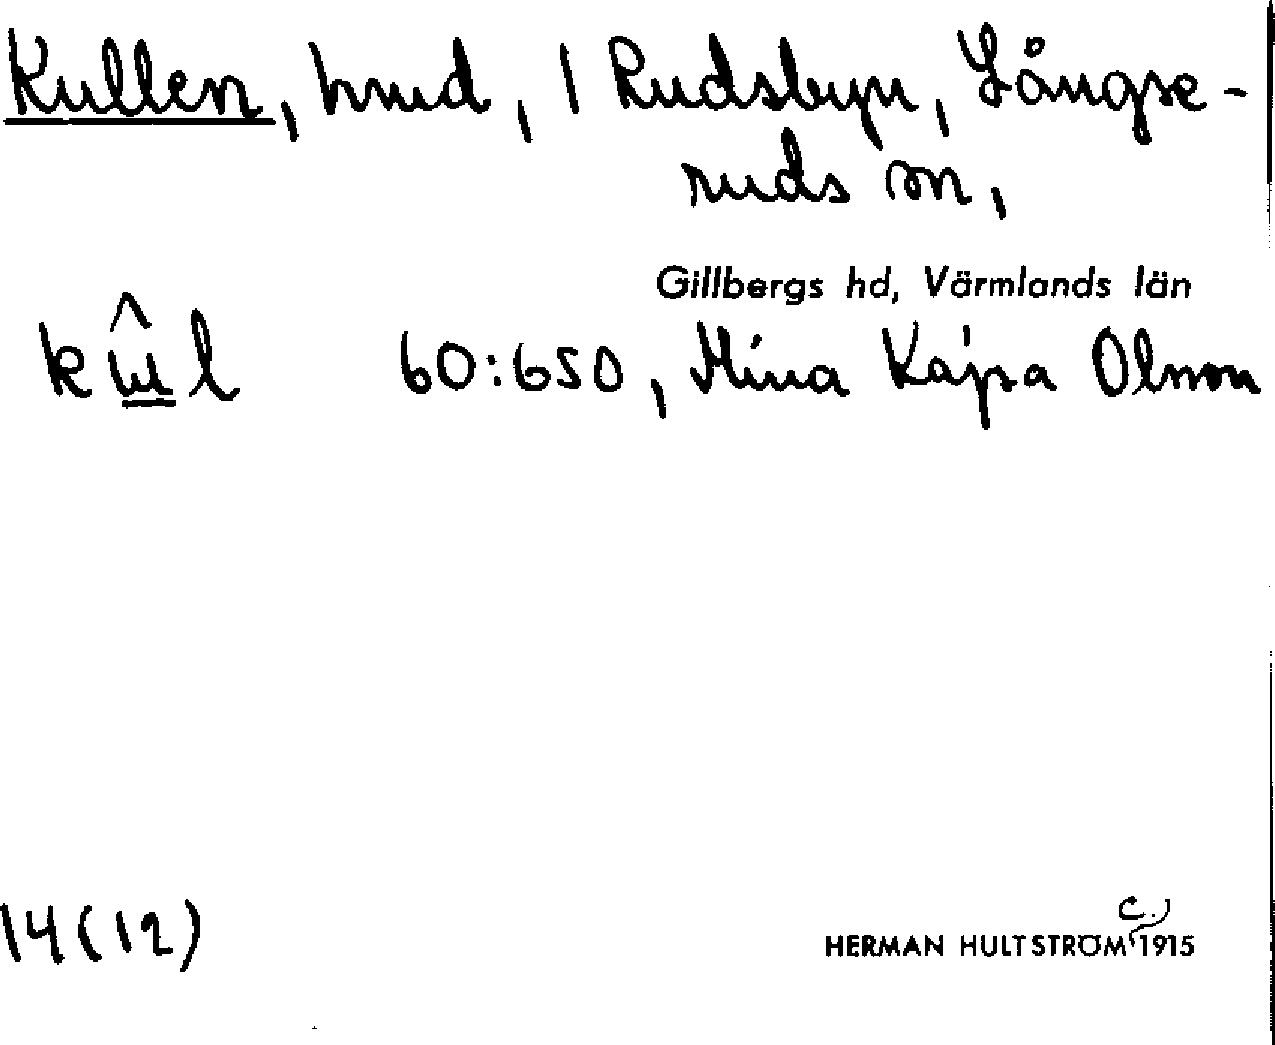 Kullen, hmd, 1 Rudsbyn, Långse-
ruds sn,
Gillbergs hd, Värmlands län
60:650, Mina Kajsa Olsson
14(12)
c.
HERMAN HULTSTRÖM 1915